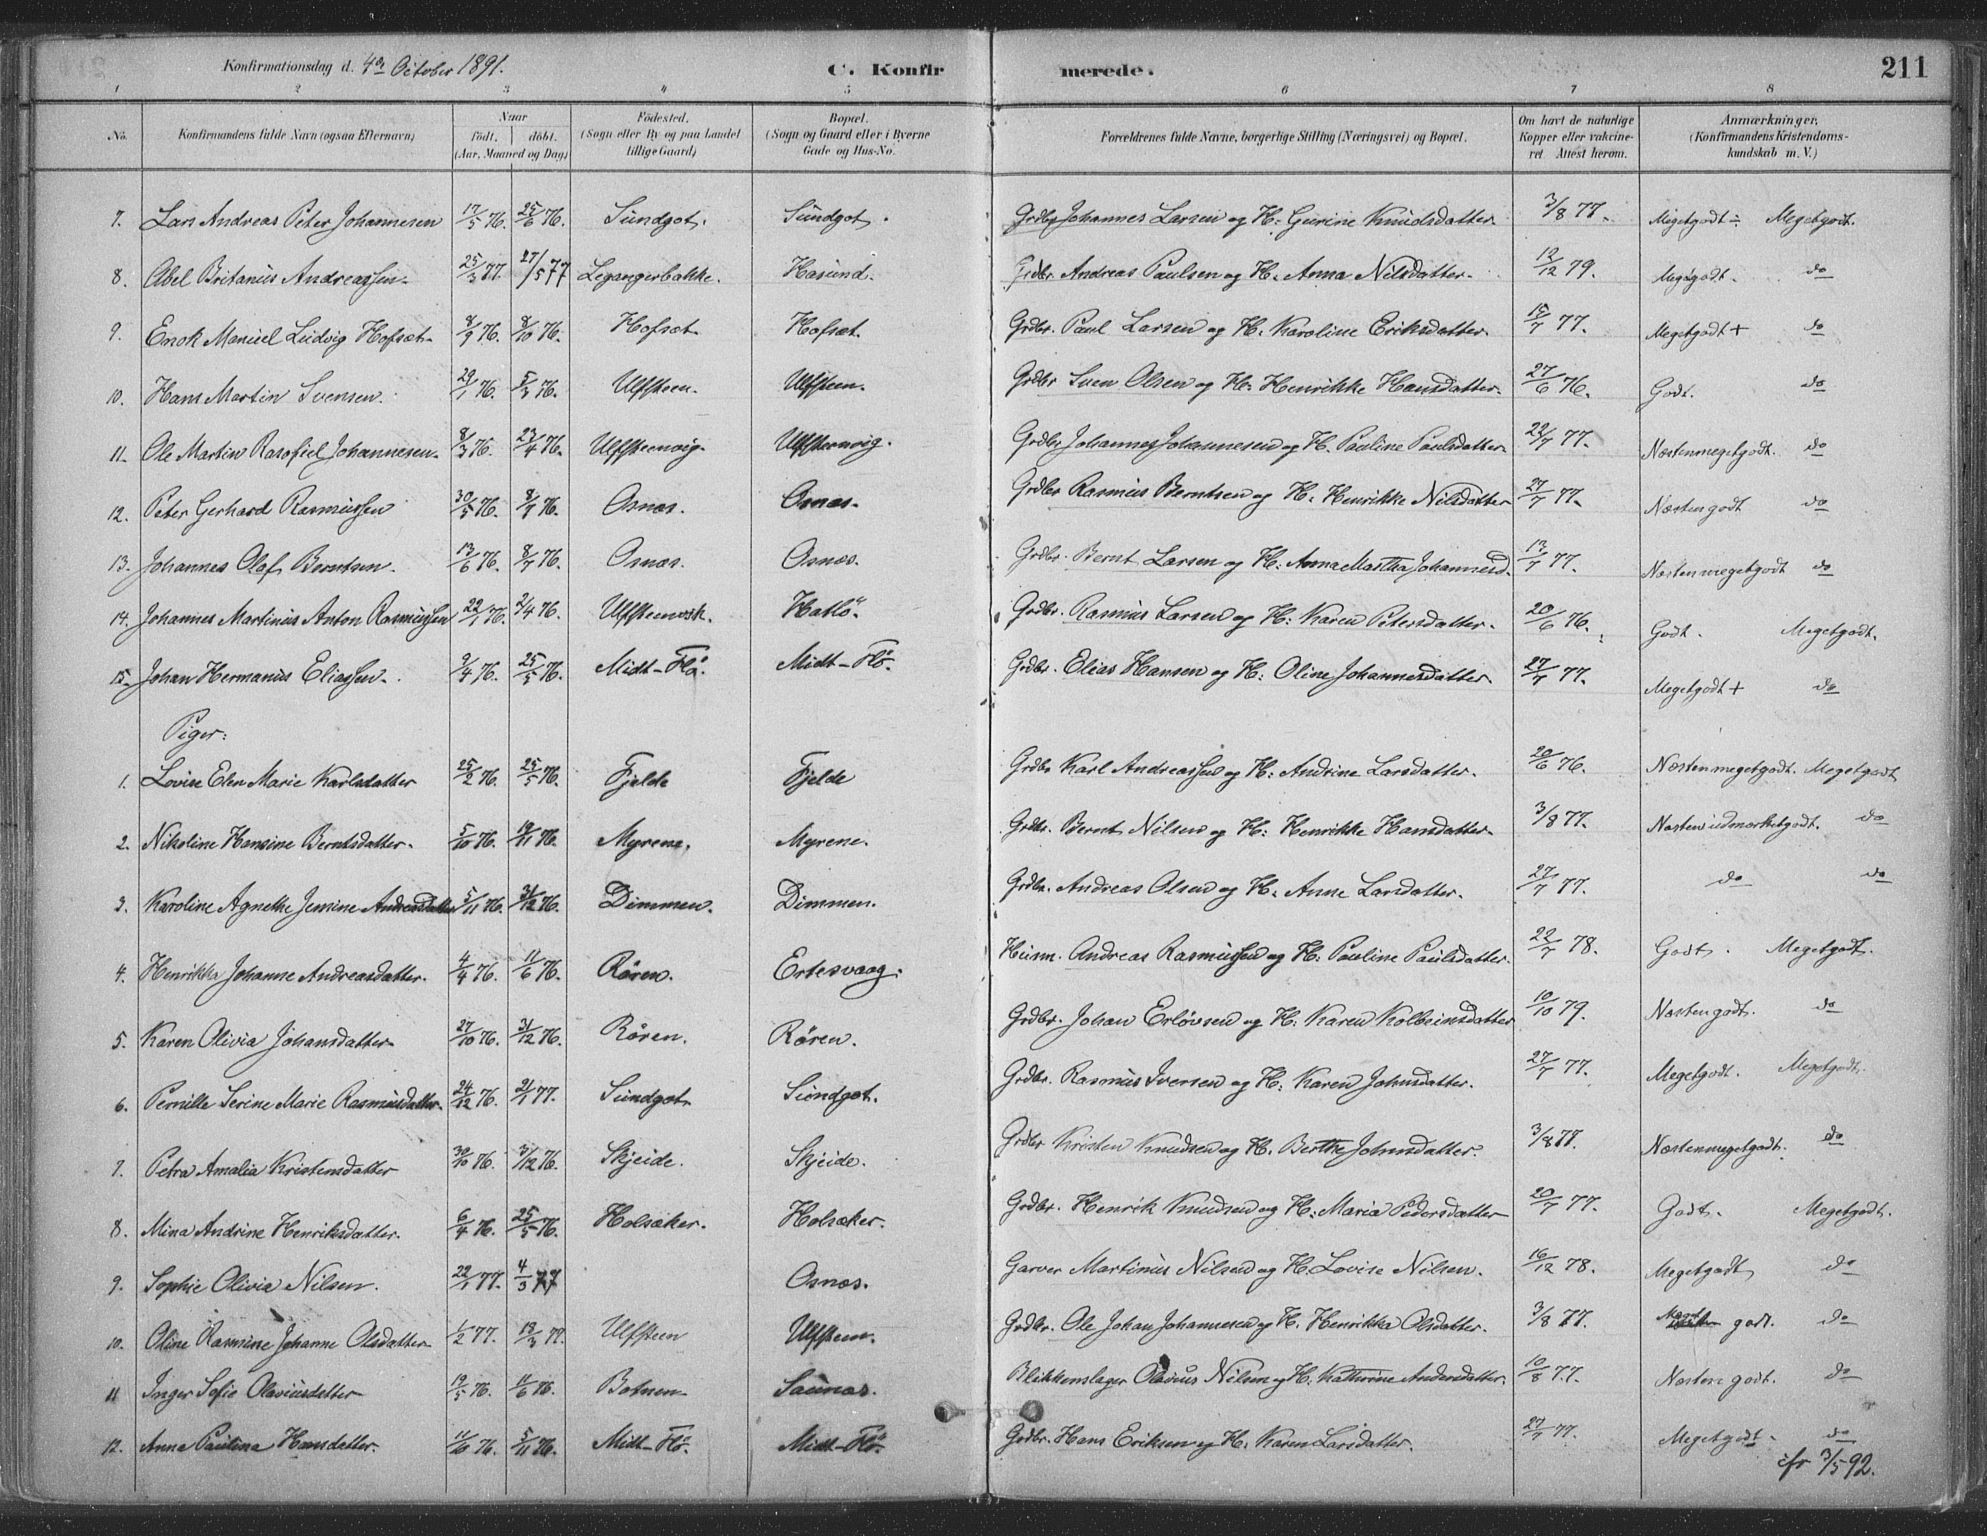 Konfirmationsdag d. 4de October 1891. C. Konfirmerede. 211
1 2 3 4 5 6 7 8
No. Konfirmandens fulde Navn (ogsaa Efternavn) Naar født. døbt. (Aar, Maaned og Dag) Fødested. (Sogn eller By og paa Landet tillige Gaard) Bopæl. (Sogn og Gaard eller i Byerne Gade og Hus-No. Forældrenes fulde Navne, borgerlige Stilling (Næringsvei) og Bopæl. Om havt de naturlige Kopper eller vakcineret Attest herom. Anmærkninger, (Konfirmandens Kristendomskundskab m. V.)
7. Lars Andreas Peter Johannesen 17/5 76. 25/6 76. Sundgot. Sundgot. Grdbr Johannes Larsen og H: Gurine Knudsdatter. 3/8 77. Megetgodt÷ Megetgodt.
8. Abel Britanius Andreassen 25/3 77. 27/5 77 Legangerbakke. Hasund. Grdbr. Andreas Paulsen og H: Anna Nilsdatter. 12/12 79. Megetgodt. do
9. Enok Manuel Ludvig Hofsæt 8/9 76. 8/10 76. Hofsæt Hofsæt. Grdbr. Paul Larsen og H: Karoline Eriksdatter. 15/7 77. Megetgodt + do
10. Hans Martin Svensen. 29/1 76. 5/3 76. Ulfsteen. Ulfsteen. Grdbr Sven Olsen og H: Henrikke Hansdatter. 27/6 76. Godt. do
11. Ole Martin Rasofiel Johannesen. 8/3 76. 23/4 76. Ulfsteenvig. Ulfsteenvig. Grdbr Johannes Johannesen og H. Pauline Paulsdatter 22/7 77. Næstenmegetgodt. do
12. Peter Gerhard Rasmussen 30/5 76. 8/7 76. Osnæs. Osnæs. Grdbr Rasmus Berntsen og H: Henrikke Nilsdatter 27/7 77. Næsten godt do
13. Johannes Olaf Berntsen. 13/6 76. 8/7 76. Osnæs. Osnæs. Grdbr. Bernt Larsen og H: Anna Martha Johannesd. 13/7 77. Næsten megetgodt do
14. Johannes Martinus Anton Rasmussen 22/1 76. 2/4 76. Ulfsteenvik. Hatlö. Grdbr. Rasmus Larsen og H: Karen Petersdatter. 20/6 76. Godt. Megetgodt.
15. Johan Hermanus Eliassen. 9/4 76. 25/5 76. Midt-Flö. Midt-Flö. Grdbr. Elias Hansen og H: Oline Johannesdatter. 27/7 77. Megetgodt + do
Piger:
1. Lovise Elen Marie Karlsdatter 25/2 76. 25/5 76. Fjelde Fjelde Grdbr Karl Andreassen og H: Andrine Larsdatter. 20/6 76. Næsten megetgodt. Megetgodt
2. Nikoline Hansine Berntsdatter. 5/10 76. 19/11 76. Myrene. Myrene. Grdbr. Bernt Nilsen og H: Henrikke Hansdatter. 3/8 77. Næsten udmerketgodt. do
3. Karoline Agnethe Jensine Andreasdatter 5/11 76. 31/12 76. Dimmen. Dimmen. Grdbr. Andreas Olsen og H: Anne Larsdatter. 27/7 77. do do
4. Henrikka Johanne Andreasdatter. 4/4 76. 11/6 76. Rören. Ertesvaag. Husm. Andreas Rasmussen og H: Pauline Paulsdatter. 22/7 78. Godt. Megetgodt.
5. Karen Olivia Johansdatter 27/10 76. 31/12 76. Rören. Rören. Grdbr. Johan Erlövsen og H: Karen Kolbeinsdatter 10/10 79. Næsten godt. do
6. Pernille Serine Marie Rasmusdatter. 24/12 76. 21/1 77. Sundgot. Sundgot. Grdbr. Rasmus Iversen og H: Karen Johnsdatter. 27/7 77. Megetgodt. Megetgodt.
7. Petra Amalia Kristensdatter 30/10 76. 31/12 76. Skjeide. Skjeide. Grdbr Kristen Knudsen og H. Berthe Johnsdatter. 3/8 77. Næstenmegetgodt. do
8. Mina Andrine Henriksdatter. 6/4 76. 25/5 76. Holsæker. Holsæker. Grdbr. Henrik Knudsen og H: Maria Pedersdatter 20/7 77. Godt. Megetgodt.
9. Sophie Olivia Nilsen. 22/1 77. 4/3 77 Osnæs. Garver Martinus Nilsen og H. Lovise Nilsen. 16/12 78. Megetgodt do
10. Oline Rasmine Johanne Olsdatter 1/2 77. 18/3 77. Ulfsteen Ulfsteen. Grdbr. Ole Johan Johannesen og H. Henrikka Olsdatter. 3/8 77. godt. do
11 Inger Sofie Olaviusdatter 19/5 76. 11/6 76. Botnen Saunæs. Blikkenslager Olavus Nilsen og H. Kathrine Andersdatter. 10/8 77. Næsten godt. do
12. Anna Paulina Hansdatter. 11/10 76. 5/11 76. Midt-Flö. Midt-Flö. Grdbr. Hans Eriksen og H. Karen Larsdatter. 27/7 77. Megetgodt. do
cfr 3/5 92.